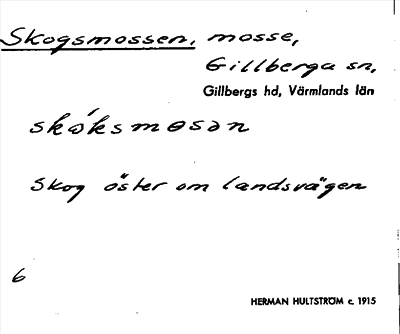 Skogsmossen, mosse,
Gillberga sn,
Gillbergs hd, Värmlands län
skóksmosan
Skog öster om landsvägen
6
HERMAN HULTSTRÖM c. 1915